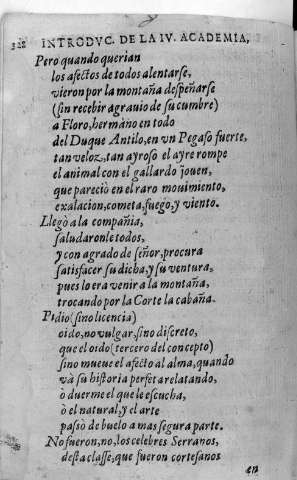 328 INTRODVC. DE LA IV. ACADEMIA,
Pero quando querian
los afectos de todos alentarse,
vieron por la montaña despeñarse
(sin recebir agrauio de su cumbre)
a Floro, hermano en todo
del Duque Antilo, en vn Pegaso fuerte,
tan veloz, tan ayroso el ayre rompe
el animal con el gallardo jouen,
que pareciò en el raro mouimiento,
exalacion, cometa, fuego, y viento.
Llegò a la compañia,
saludaronle todos,
y con agrado de señor, procura
satisfacer su dicha, y su ventura,
pues lo era venir a la montaña,
trocando por la Corte la cabaña.
Pidio (sino licencia)
oido, no vulgar, sino discreto,
que el oido (tercero del concepto)
sino mueue el afecto al alma, quando
và su historia perfeta relatando,
ò duerme el que le escucha,
ò el natural, y el arte
passò de buelo a mas segura parte.
No fueron, no, los celebres Serranos,
desta classe, que fueron cortesanos